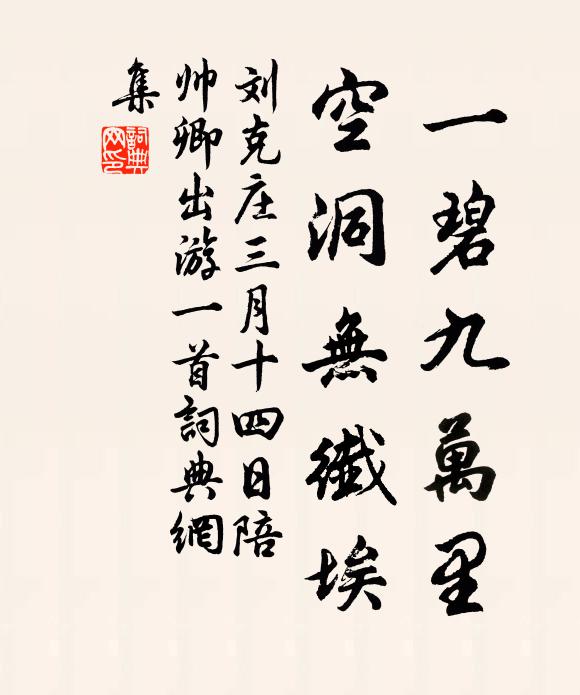 一碧九萬里
空洞無纖埃
刘克庄三月十四日陪
帅卿出游一首詞典網
集
詞典
网印